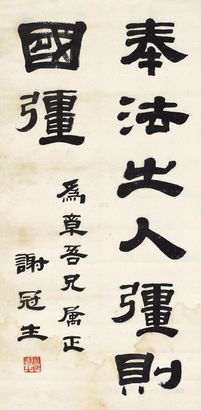 奉法之人彊則
國彊
為章吾兄属正
謝冠生